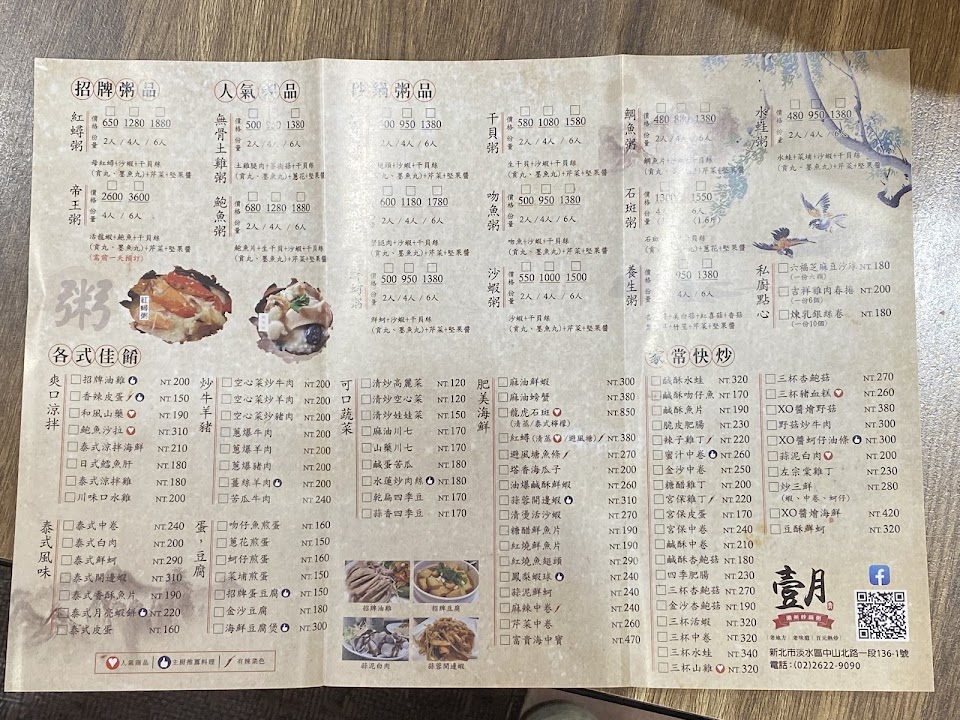 招牌粥品
紅蟳粥
價格 650 1280 1880
份量 2人 / 4人 / 6人
母紅蟳+沙蝦+干貝絲
(貢丸、墨魚丸)+芹菜+堅果醬
帝王粥
價格 2600 3600
份量 4人 / 6人
活龍蝦+鮑魚+干貝絲
(貢丸、墨魚丸)+芹菜+堅果醬
(需前一天預訂)
粥
紅蟳粥
人氣粥品
無骨土雞粥
價格 500 1380
份量 2人 / 4人 / 6人
(貢丸、墨魚丸)+蔥花+堅果醬
鮑魚粥
價格 680 1280 1880
份量 2人 / 4人 / 6人
鮑魚片+生干貝+沙蝦+干貝絲
(貢丸、墨魚丸)+芹菜+堅果醬
砂鍋粥品
950 1380
2人 / 4人 / 6人
+沙蝦+干貝絲
(貢丸、墨魚丸)+芹菜+堅果醬
600 1180 1780
2人 / 4人 / 6人
+沙蝦+干貝絲
(貢丸、墨魚丸)+芹菜+堅果醬
500 950 1380
份量 2人 / 4人 / 6人
鮮蚵+沙蝦+干貝絲
(貢丸、墨魚丸)+芹菜+堅果醬
干貝粥
價格 580 1080 1580
份量 2人 / 4人 / 6人
生干貝+沙蝦+干貝絲
(貢丸、墨魚丸)+芹菜+堅果醬
吻魚粥
價格 500 950 1380
份量 2人 / 4人 / 6人
吻魚+沙蝦+干貝絲
(貢丸、墨魚丸)+芹菜+堅果醬
沙蝦粥
價格 550 1000 1500
份量 2人 / 4人 / 6人
沙蝦+干貝絲
(貢丸、墨魚丸)+芹菜+堅果醬
鯛魚粥
價格 480 880 1380
份量 2人 / 4人 / 6人
鯛魚片+沙蝦+干貝絲
(貢丸、墨魚丸)+芹菜+堅果醬
石斑粥
價格 1300 1550
份量 (1.6斤)
(貢丸、墨魚丸)+蔥花+堅果醬
養生粥
價格 950 1380
份量 4人 / 6人
水蛙粥
價格 480 950 1380
份量 2人 / 4人 / 6人
水蛙+菜埔+沙蝦+干貝絲
(貢丸、墨魚丸)+芹菜+堅果醬
私廚點心
六福芝麻豆沙球 NT.180
(一份六顆)
吉祥雞肉春捲 NT.200
(一份6個)
煉乳銀絲卷 NT.180
(一份10個)
各式佳餚
爽口涼拌
招牌油雞 NT.200
香辣皮蛋 NT.150
和風山藥 NT.190
鮑魚沙拉 NT.310
泰式涼拌海鮮 NT.210
日式鱈魚肝 NT.180
泰式涼拌雞 NT.180
川味口水雞 NT.200
泰式風味
泰式中卷 NT.240
泰式白肉 NT.200
泰式鮮蚵 NT.290
泰式開邊蝦 NT.310
泰式香酥魚片 NT.190
泰式月亮蝦餅 NT.220
泰式皮蛋 NT.160
炒牛羊豬
空心菜炒牛肉 NT.200
空心菜炒羊肉 NT.200
空心菜炒豬肉 NT.200
蔥爆牛肉 NT.200
蔥爆羊肉 NT.200
蔥爆豬肉 NT.200
薑絲羊肉 NT.200
苦瓜牛肉 NT.240
蛋,豆腐
吻仔魚煎蛋 NT.160
蔥花煎蛋 NT.150
蚵仔煎蛋 NT.160
菜埔煎蛋 NT.150
招牌蛋豆腐 NT.150
金沙豆腐 NT.180
海鮮豆腐煲 NT.300
可口蔬菜
清炒高麗菜 NT.120
清炒空心菜 NT.120
清炒娃娃菜 NT.150
麻油川七 NT.170
山藥川七 NT.170
鹹蛋苦瓜 NT.180
水蓮炒肉絲 NT.180
乾扁四季豆 NT.170
蒜香四季豆 NT.170
招牌油雞
招牌豆腐
蒜泥白肉
蒜蓉開邊蝦
肥美海鮮
麻油鮮蝦 NT.300
麻油螃蟹 NT.380
龍虎石斑 NT.850
(清蒸/泰式檸檬)
紅蟳(清蒸 / 避風塘) NT.380
避風塘魚條 NT.270
塔香海瓜子 NT.200
油爆鹹酥鮮蝦 NT.260
蒜蓉開邊蝦 NT.310
清燙活沙蝦 NT.270
糖醋鮮魚片 NT.190
紅燒鮮魚片 NT.190
紅燒鮮魚翅頭 NT.190
鳳梨蝦球 NT.240
蒜泥鮮蚵 NT.240
麻辣中卷 NT.240
芹菜中卷 NT.260
富貴海中寶 NT.470
家常快炒
鹹酥水蛙 NT.320
鹹酥吻仔魚 NT.170
鹹酥魚片 NT.190
脆皮肥腸 NT.230
辣子雞丁 NT.220
蜜汁中卷 NT.260
金沙中卷 NT.250
糖醋雞丁 NT.200
宮保雞丁 NT.220
宮保皮蛋 NT.170
宮保中卷 NT.240
鹹酥中卷 NT.210
鹹酥杏鮑菇 NT.180
四季肥腸 NT.230
三杯杏鮑菇 NT.270
金沙杏鮑菇 NT.190
三杯活蝦 NT.320
三杯中卷 NT.320
三杯水蛙 NT.340
三杯山雞 NT.320
三杯杏鮑菇 NT.270
三杯豬血糕 NT.260
XO醬燴野菇 NT.380
野菇炒牛肉 NT.300
XO醬蚵仔油條 NT.300
蒜泥白肉 NT.200
左宗棠雞丁 NT.230
炒三鮮 NT.280
(蝦、中卷、蚵仔)
XO醬燴海鮮 NT.420
豆酥鮮蚵 NT.320
人氣商品 主廚推薦料理 有辣菜色
壹月
潮州砂鍋粥
老地方 | 老味道 |
新北市淡水區中山北路一段136-1號
電話:(02)2622-9090